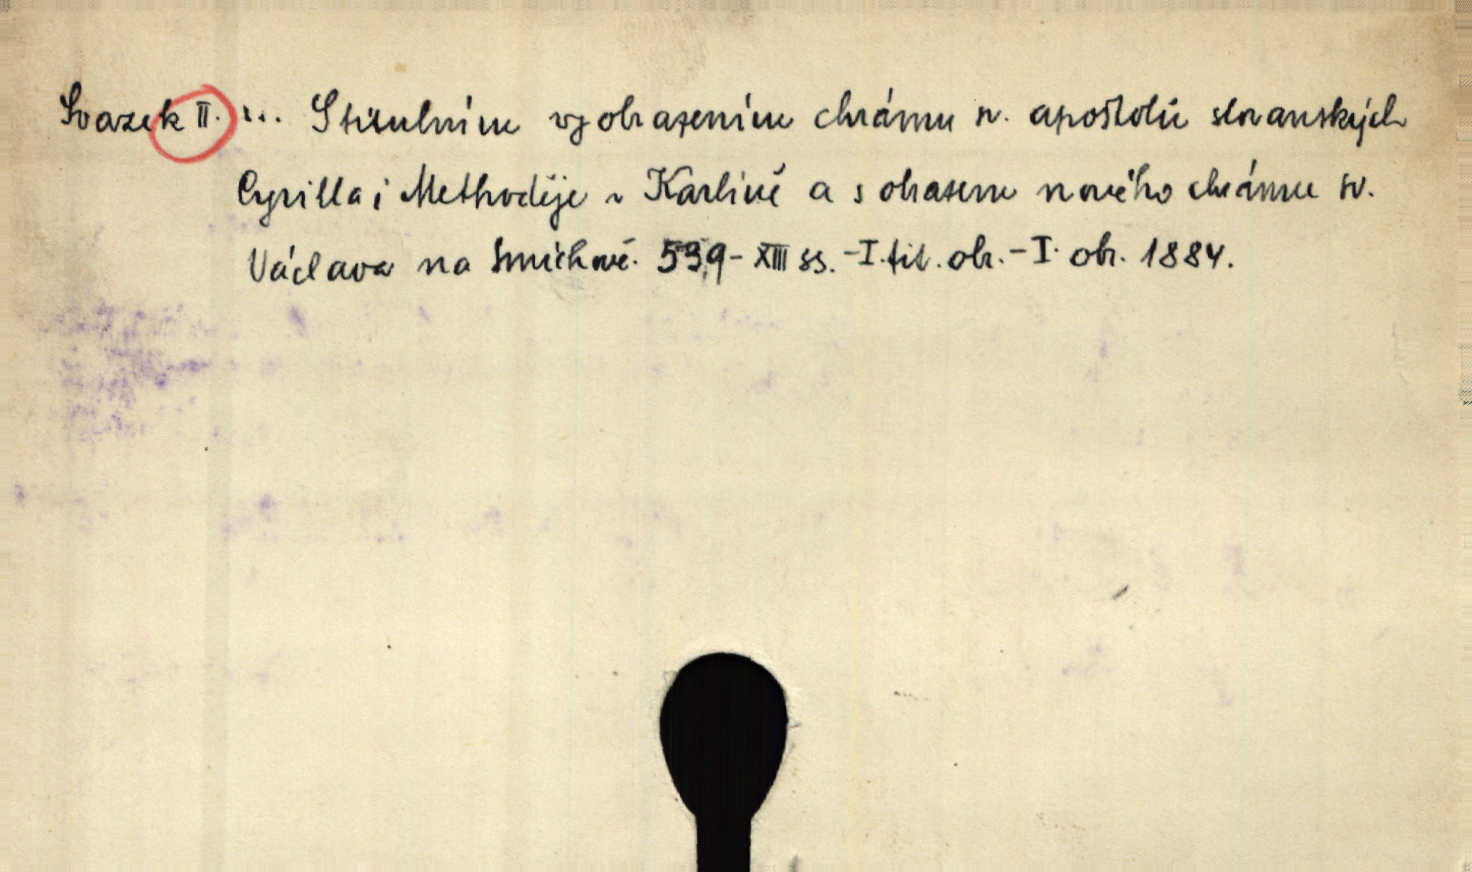 Svazek II. ... S titulním vyobrazením chrámu sv. apoštolů slovanských
Cyrilla i Methoděje v Karlíně a s obrazem nového chrámu sv.
Václava na Smíchově. 539 - XIII ss. - I. tit. obr. - I. obr. 1884.